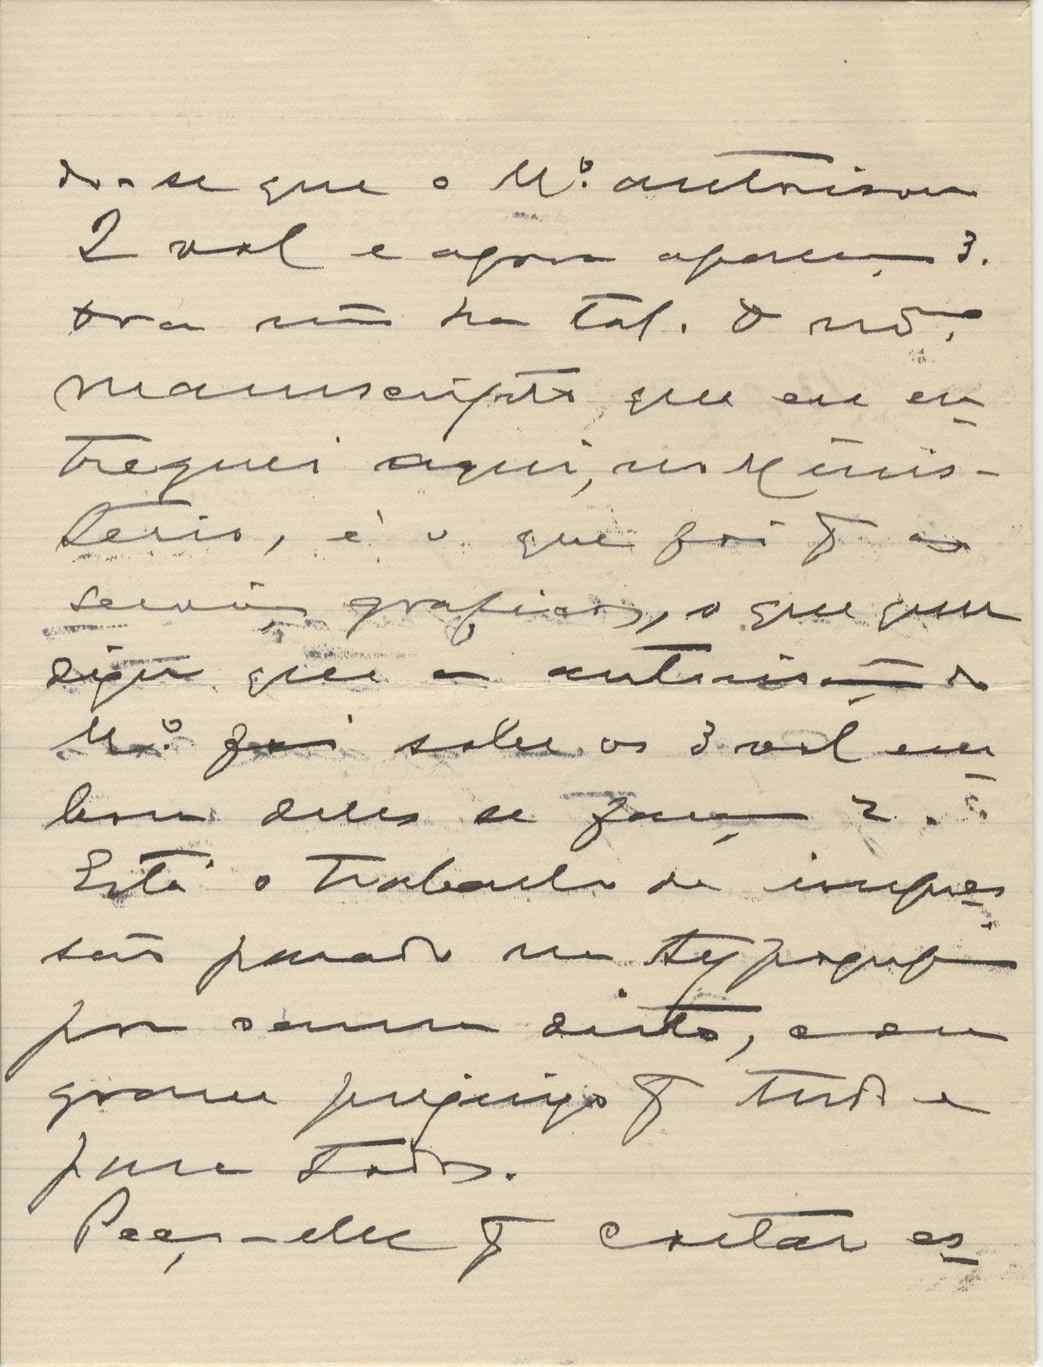 do-se que o M.º autorisou
2 vol e agora aparecem 3.
Ora não ha tal. O
manuscripto que eu en
treguei aqui, no Minis-
terio, é o que foi p.ª os
serviços graficos, o que quer
dizer que a autorisação do
M.º foi sobre os 3 vol em
bora delles se façam 2.
Está o trabalho de impres
são parado na typographia
por causa disto, e com
grave prejuizo p.ª tudo e
para todos.
Peço-lhe p.ª cortar es